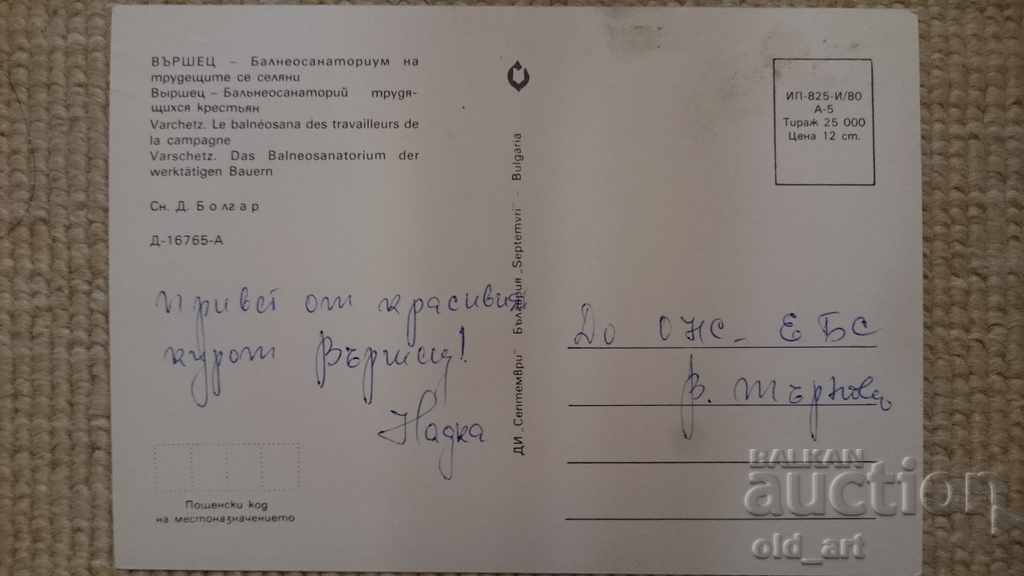 ВЪРШЕЦ – Балнеосанаториум на
трудещите се селяни
Выршец – Бальнеосанаторий трудя-
щихся крестьян
Varchetz. Le balnéosana des travailleurs de
la campagne
Varschetz. Das Balneosanatorium der
werktätigen Bauern
Сн. Д. Болгар
Д-16765-А
Привет от красивия
курорт Вършец!
Надка
Пощенски код
на местоназначението
ДИ „Септември" България „Septemvri" - Bulgaria
ИП-825-И/80
А-5
Тираж 25 000
Цена 12 ст.
До ОНС - ЕБС
В. Търново
BALKAN
auction
old_art